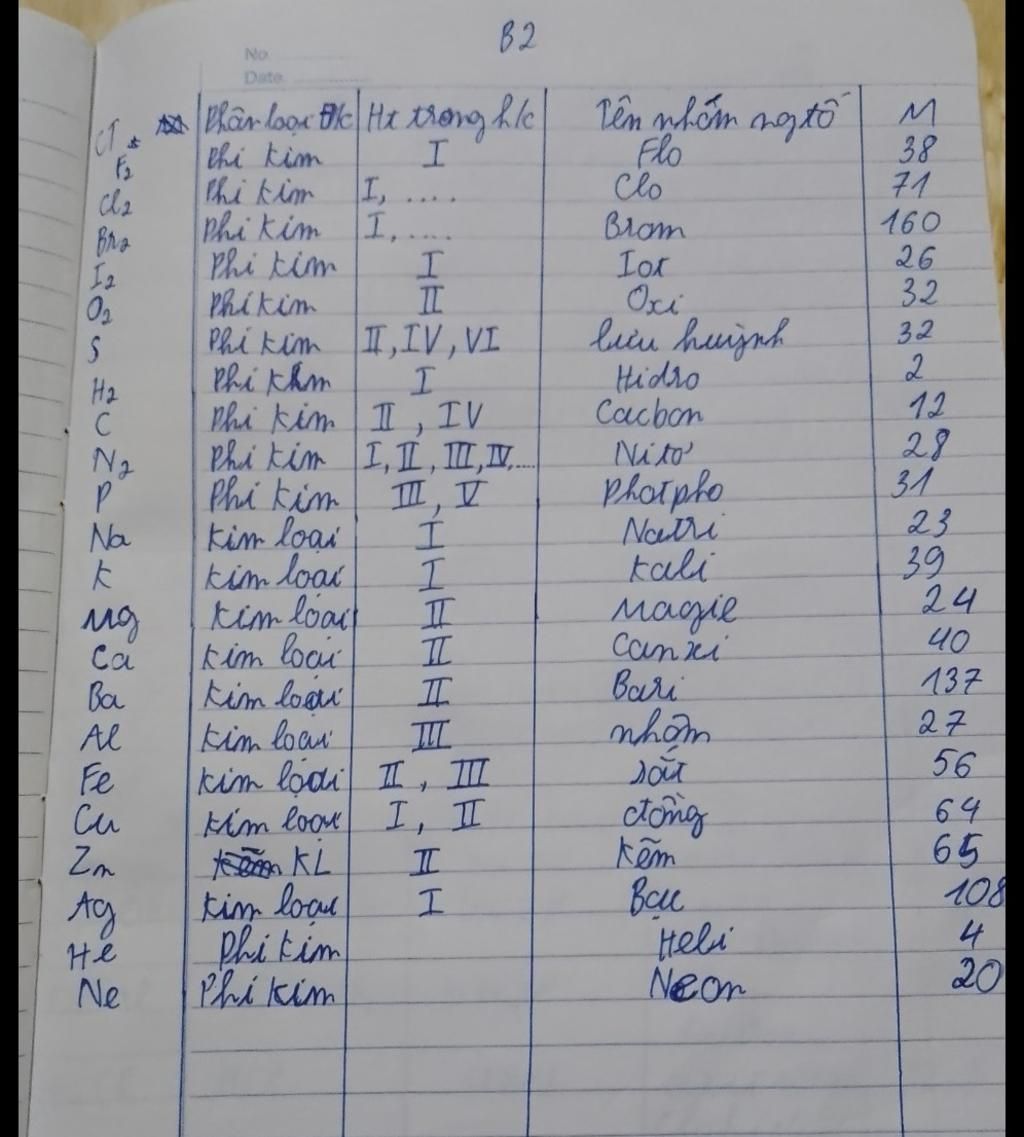 B2
No.
Date.
CT Phân loại Đ/c Ht trong h/c Tên nhóm ng tố M
F2 Phi kim I Flo 38
Cl2 Phi kim I, .... Clo 71
Br2 Phi kim I, .... Brom 160
I2 Phi kim I Iot 26
O2 Phi kim II Oxi 32
S Phi kim II, IV, VI lưu huỳnh 32
H2 Phi kim I Hidro 2
C Phi kim II, IV Cacbon 12
N2 Phi kim I, II, III, IV, .... Nitơ 28
P Phi kim III, V Photpho 31
Na Kim loại I Natri 23
K Kim loại I Kali 39
Mg Kim loại II Magie 24
Ca Kim loại II Canxi 40
Ba Kim loại II Bari 137
Al Kim loại III nhôm 27
Fe Kim loại II, III sắt 56
Cu Kim loại I, II đồng 64
Zn KL II Kẽm 65
Ag Kim loại I Bạc 108
He Phi kim Heli 4
Ne Phi kim Neon 20